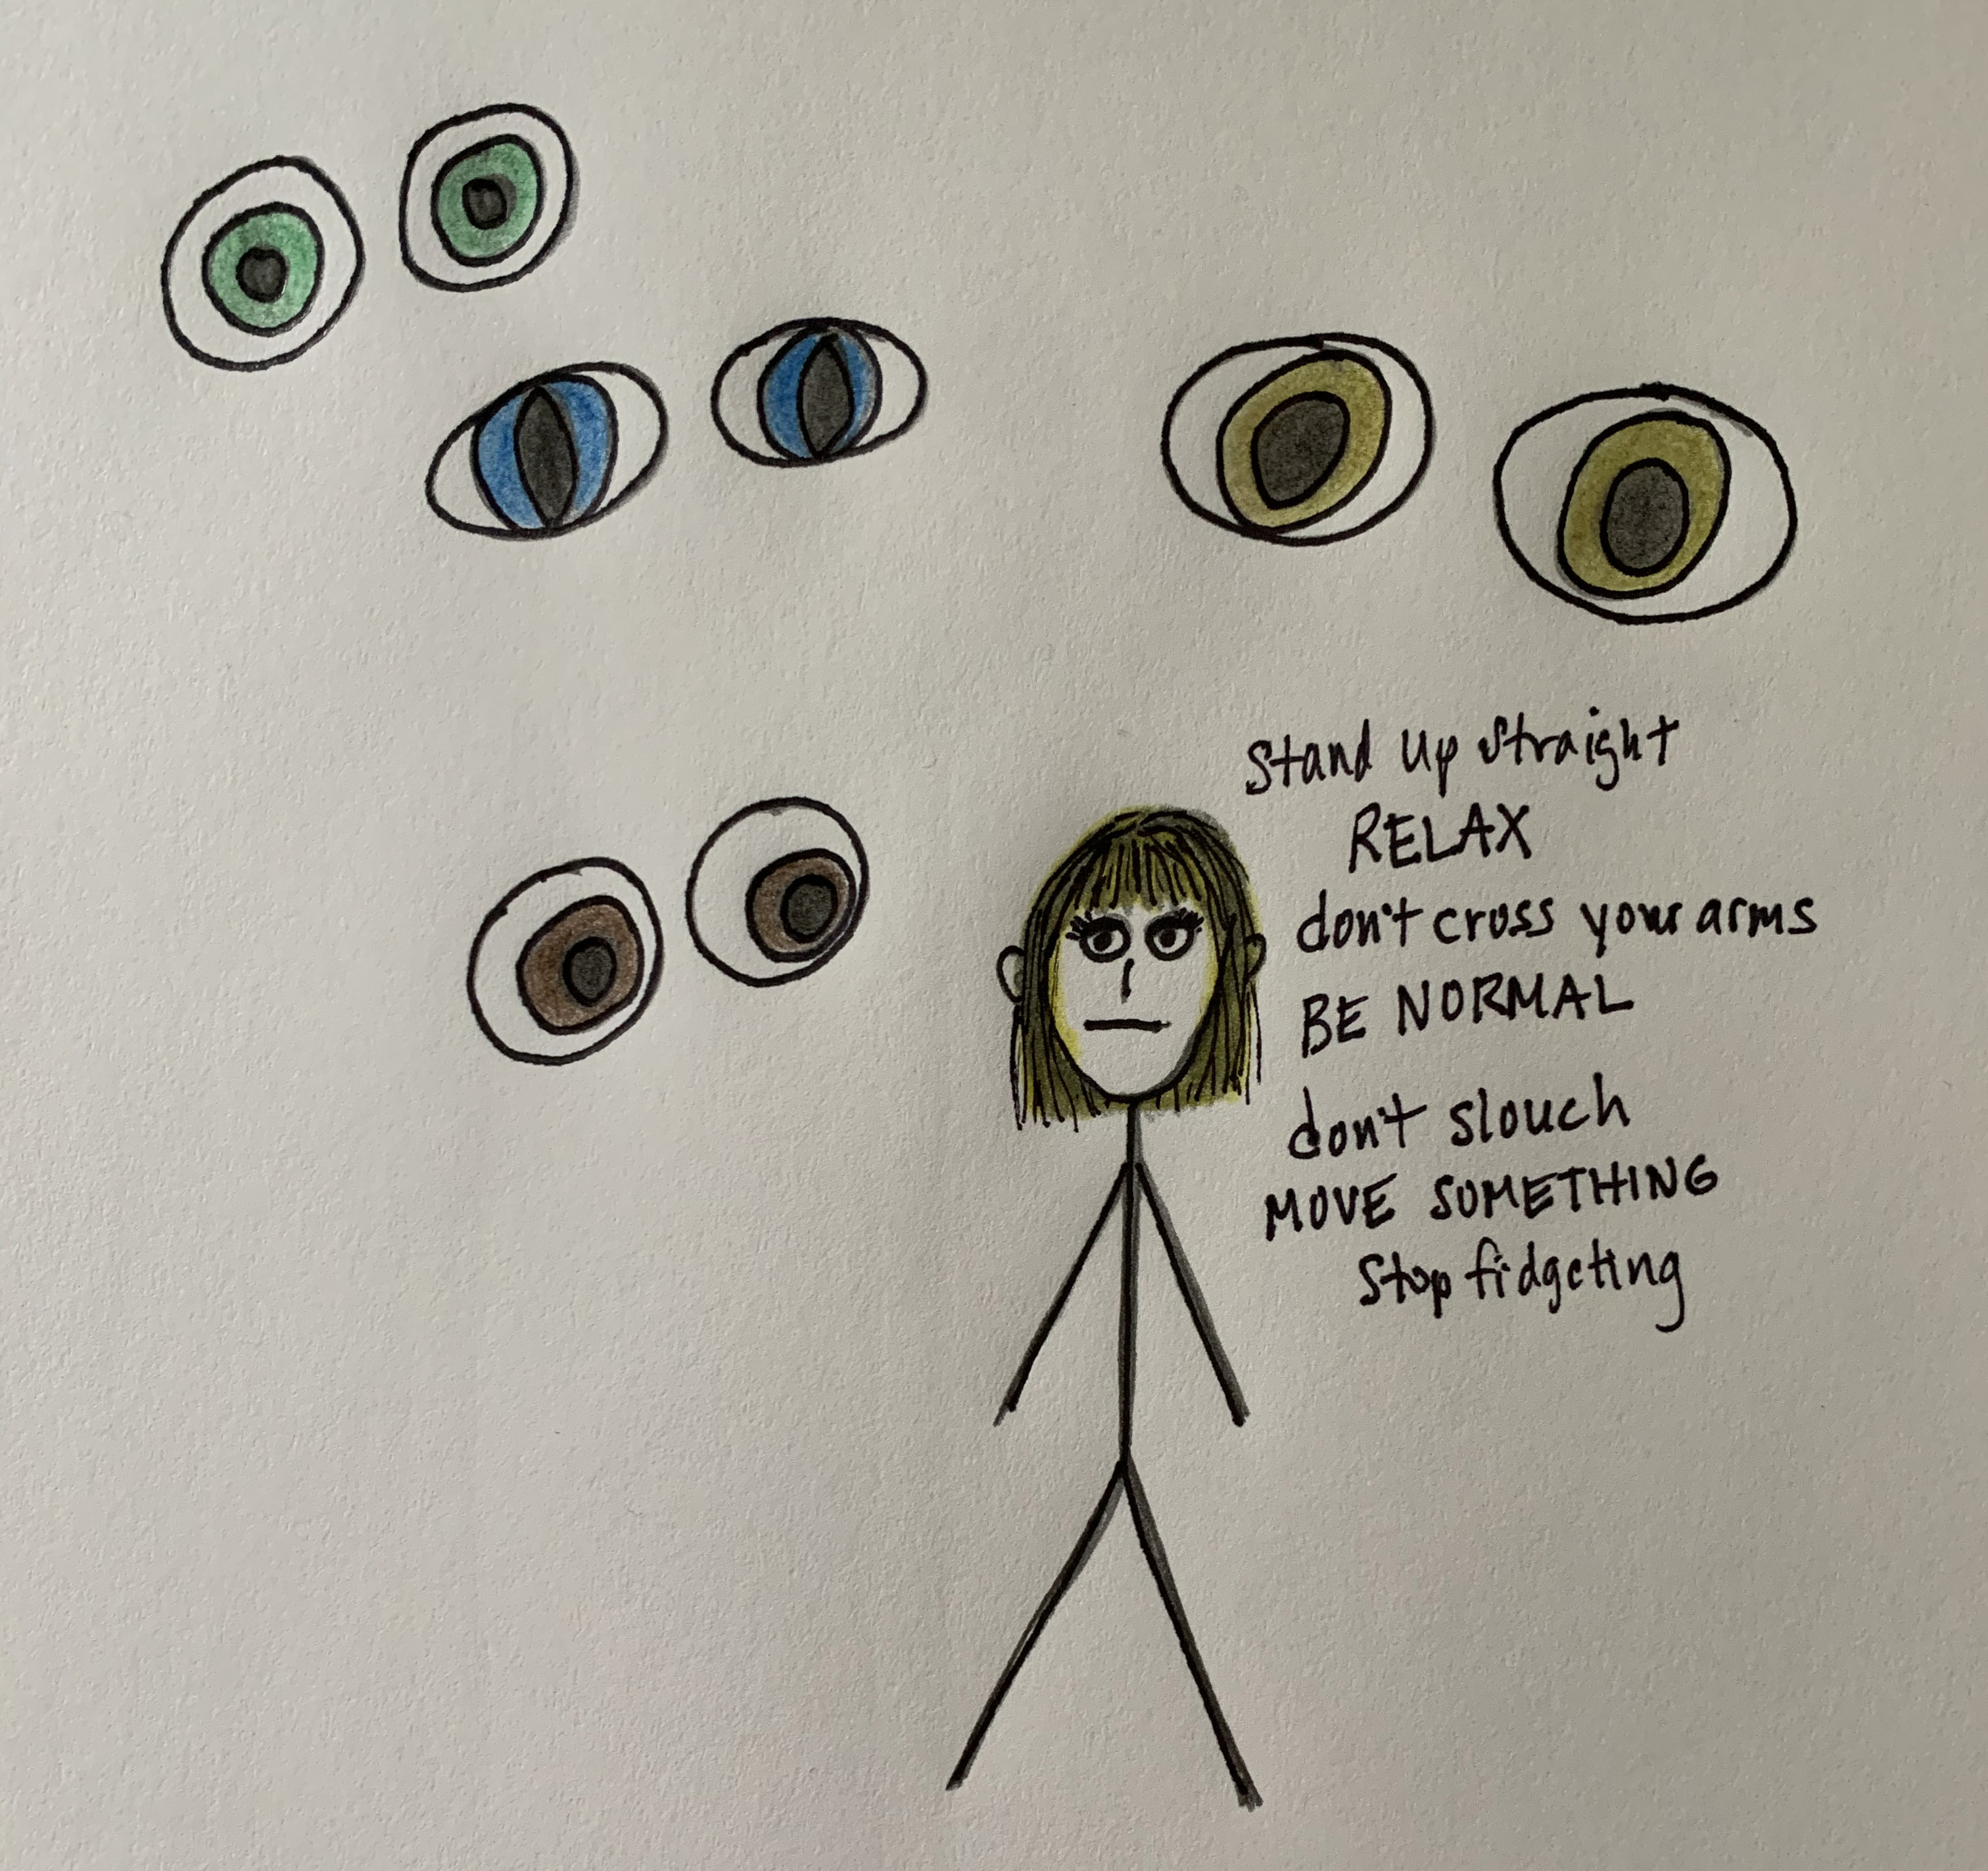 Stand up straight
RELAX
don't cross your arms
BE NORMAL
don't slouch
MOVE SOMETHING
Stop fidgeting